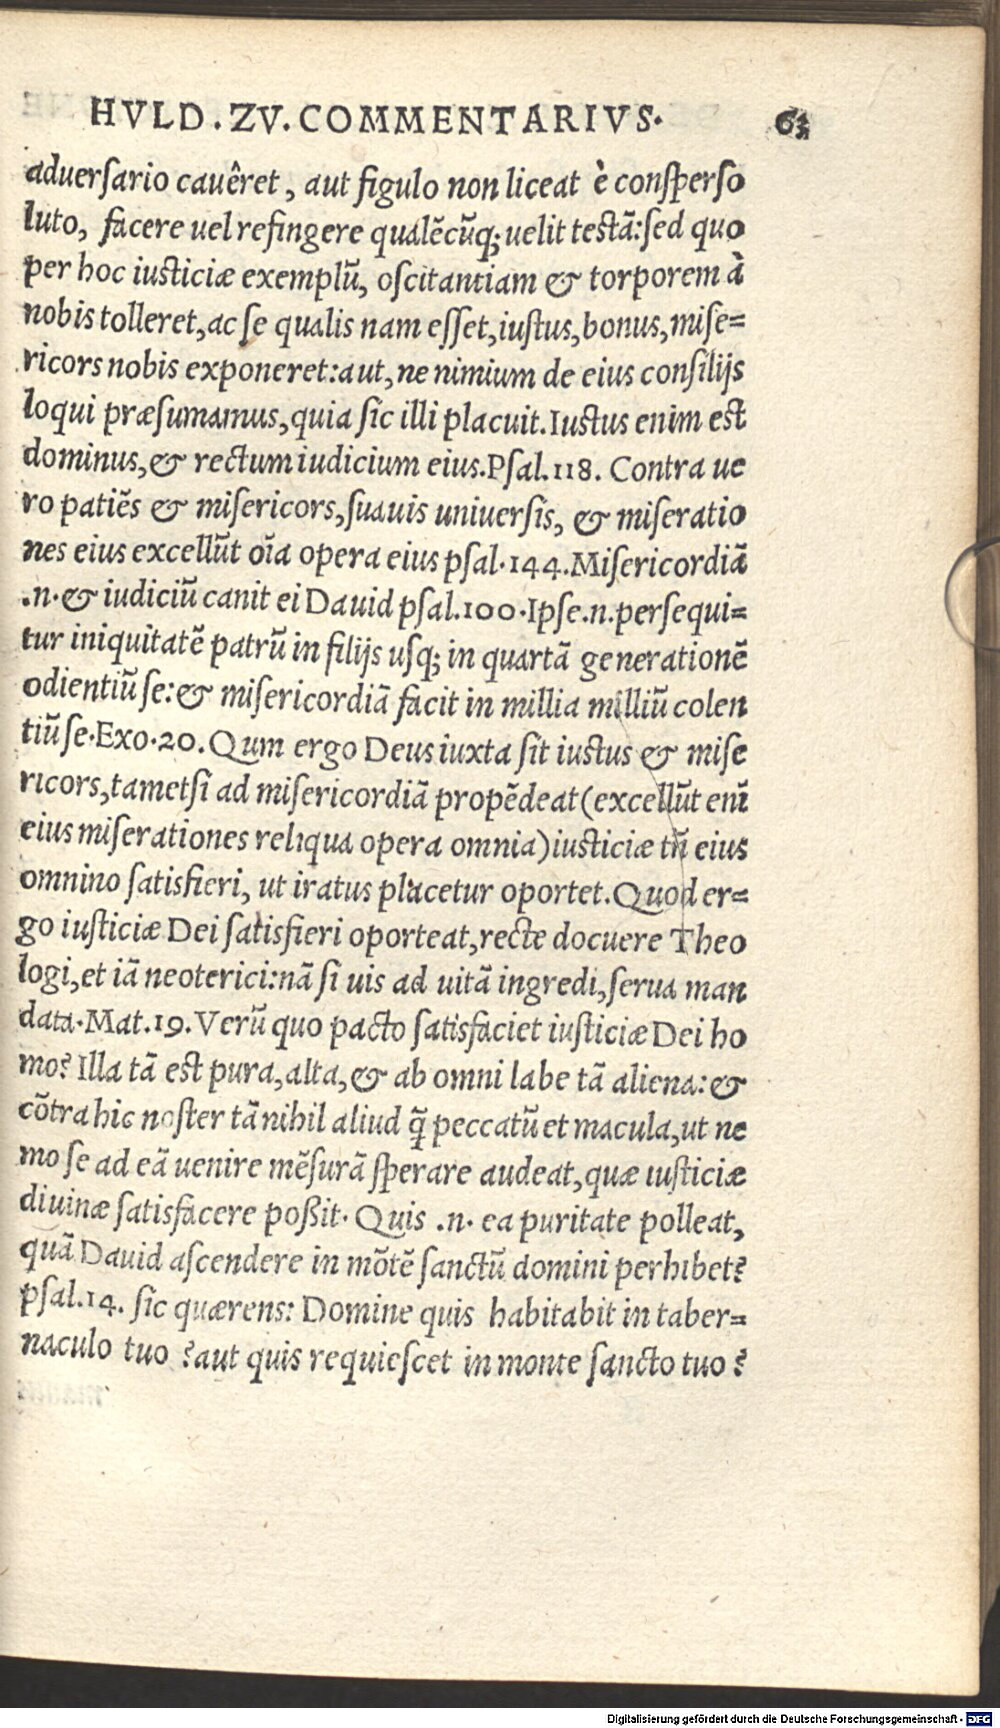 HVLD. ZV. COMMENTARIVS.
aduerſario cauêret, aut figulo non liceat è conſperſo
luto, facere uel refingere qualẽcũq; uelit teſtã: ſed quo
per hoc iuſticiæ exemplũ, oſcitantiam & torporem à
nobis tolleret, ac ſe qualis nam eſſet, iuſtus, bonus, miſe=
ricors nobis exponeret: aut, ne nimium de eius conſilijs
loqui præſumamus, quia ſic illi placuit. Iuſtus enim eſt
dominus, & rectum iudicium eius. Pſal. 118. Contra ue
ro patiẽs & miſericors, ſuauis uniuerſis, & miſeratio
nes eius excellũt oĩa opera eius pſal. 144. Miſericordiã
.n. & iudiciũ canit ei Dauid pſal. 100. Ipſe .n. perſequi=
tur iniquitatẽ patrũ in filijs uſq; in quartã generationẽ
odientiũ ſe: & miſericordiã facit in millia milliũ colen
tiũ ſe. Exo. 20. Qum ergo Deus iuxta ſit iuſtus & miſe
ricors, tametſi ad miſericordiã propẽdeat (excellũt enĩ
eius miſerationes reliqua opera omnia) iuſticiæ tñ eius
omnino ſatisfieri, ut iratus placetur oportet. Quod er=
go iuſticiæ Dei ſatisfieri oporteat, recte docuere Theo
logi, et iã neoterici: nã ſi uis ad uitã ingredi, ſerua man
data. Mat. 19. Verũ quo pacto ſatisfaciet iuſticiæ Dei ho
mo? Illa tã eſt pura, alta, & ab omni labe tã aliena: &
cõtra hic noſter tã nihil aliud q̃ peccatũ et macula, ut ne
mo ſe ad eã uenire mẽſurã ſperare audeat, quæ iuſticiæ
diuinæ ſatisfacere poßit. Quis .n. ea puritate polleat,
quã Dauid aſcendere in mõtẽ ſanctũ domini perhibet?
pſal. 14. ſic quærens: Domine quis habitabit in taber=
naculo tuo ? aut quis requieſcet in monte ſancto tuo ?
Digitalisierung gefördert durch die Deutsche Forschungsgemeinschaft - DFG